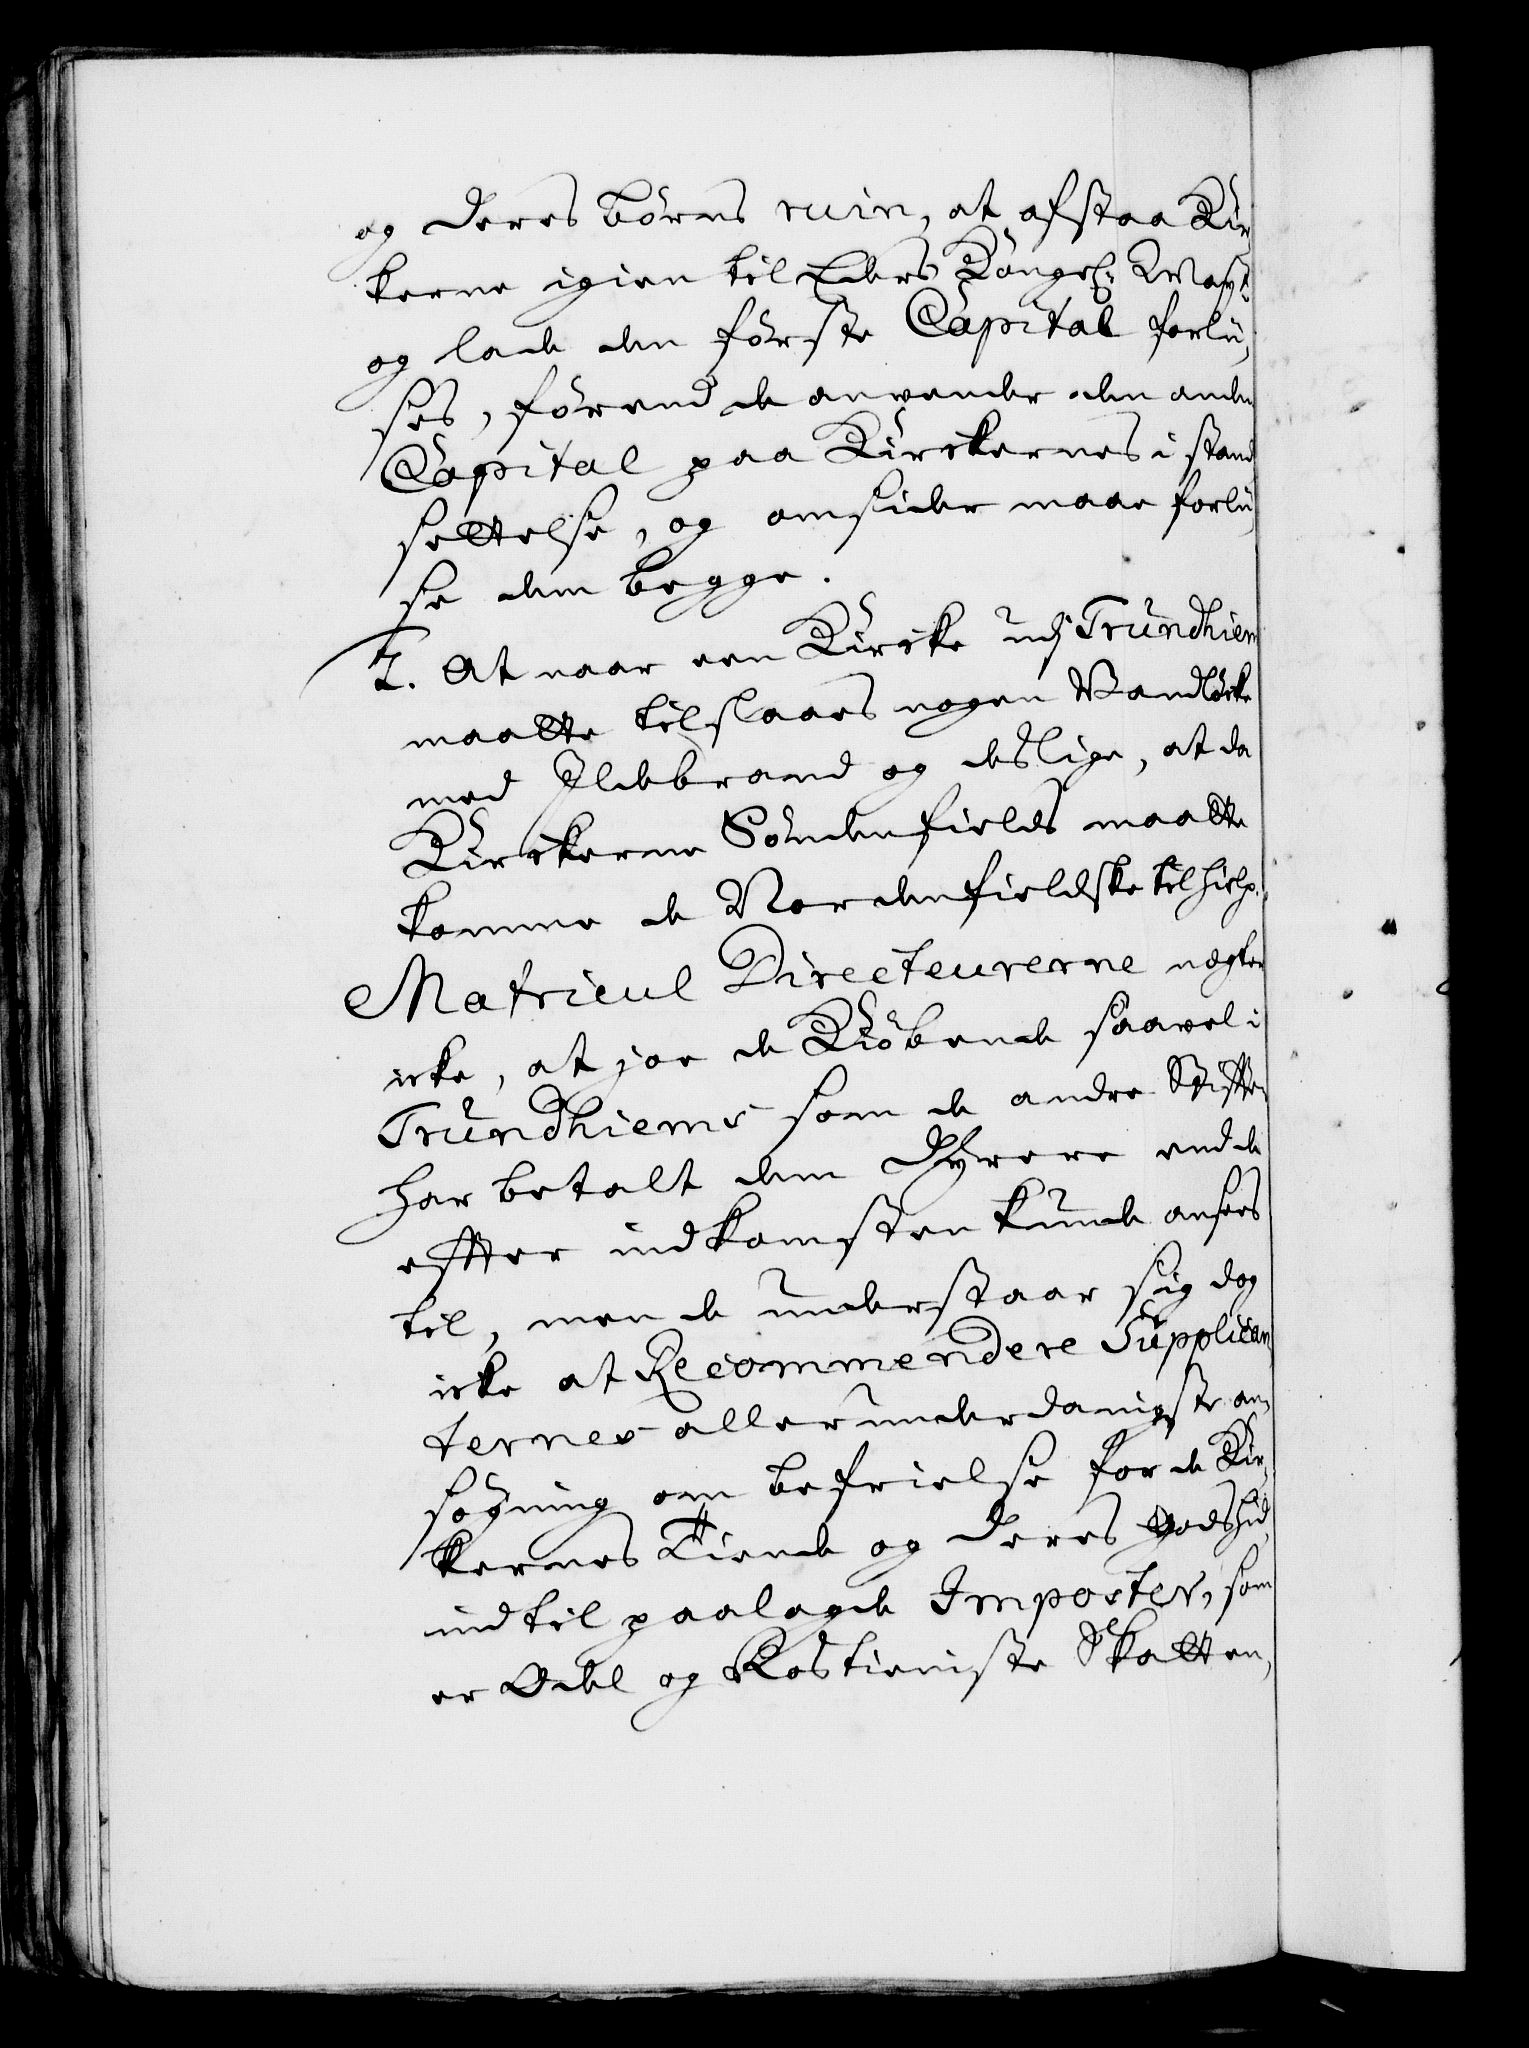 og deres börns ruin, at afstaa Kir
kerne igien til Eders Kongel: Mayt:
og lade den förste Capital forlii,
ses, förend de anvender den anden
Capital paa Kirckernes i stand
settelse, og omsider maae forlii,
se dem begge.
7. At naar een Kircke udj Trundhiem
maatte tilslaaes nogen Vandlöcke
med Ildebrand og deslige, at da
Kirckerne Söndenfields maatte
komme de Nordenfieldske til hielp.
Matricul Directeurerne negter
icke, at joe de Kiöbende saavel i
Trundhiems som de andre Stifter
har betalt dem dyrere end de
effter indkomsten kunde ansees
til, men de understaar sig dog
icke at Recommendere Supplican
ternes allerunderdanigste an,
sögning om befrielse for de Kir,
kernes Tiende og deres godshid,
indtil paalagde Imposter, som
er Odel og Rostieniste Skatten,